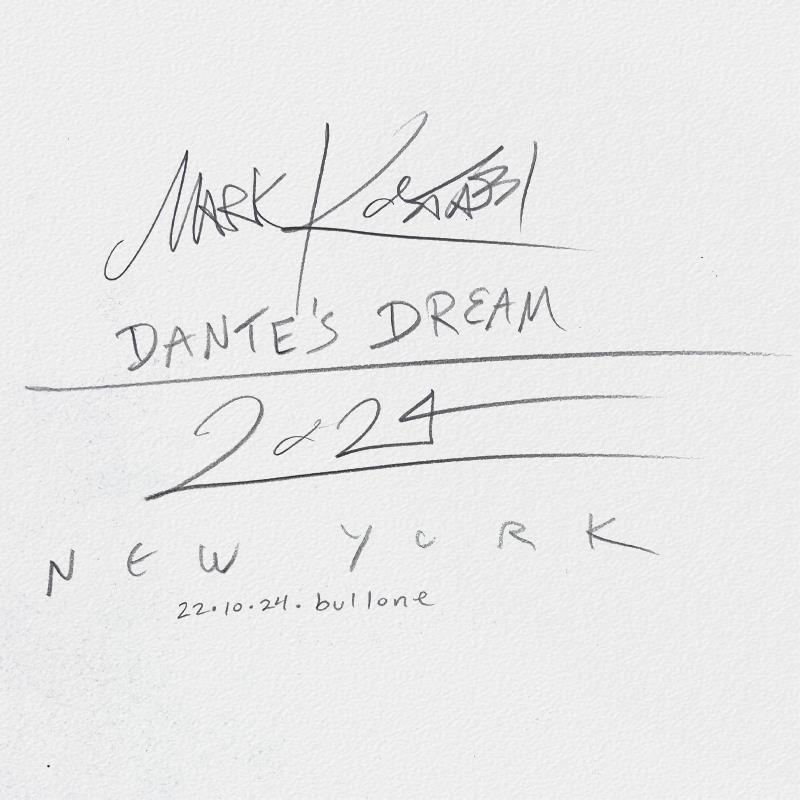 MARK KOSTABI
DANTE'S DREAM
2024
NEW YORK
22.10.24. bullone